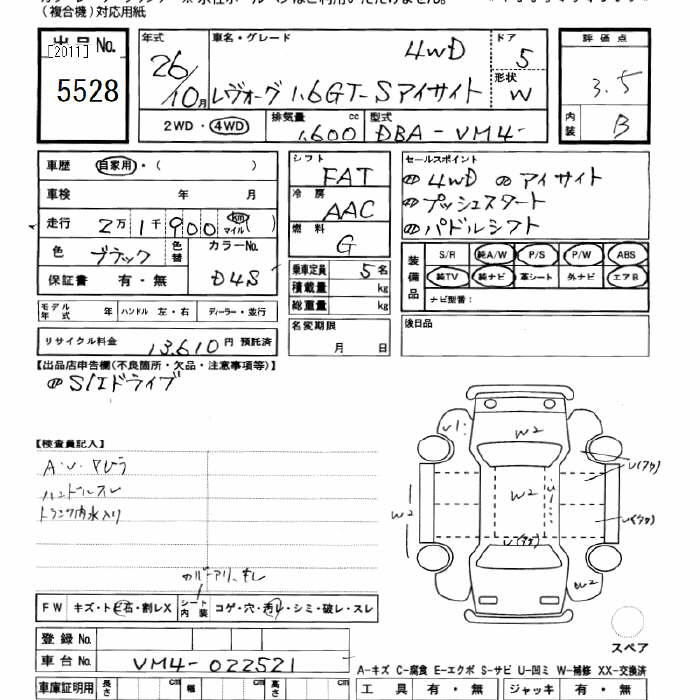 (複合機)対応用紙
出品No.
[2011]
5528
年式 26/10月
車名・グレード 4WD
レヴォーグ 1.6GT-Sアイサイト
ドア 5
形状 W
2WD・4WD
排気量 1,600 cc
型式 DBA-VM4-
評価点
3.5
内装 B
車歴 自家用・( )
車検 年 月
走行 2万1千900 km マイル( )
色 ブラック 色替 カラーNo. D4S
保証書 有・無
モデル年式 年 ハンドル 左・右 ディーラー・並行
リサイクル料金 13,610円 預託済
シフト FAT
冷房 AAC
燃料 G
乗車定員 5名
積載量 kg
総重量 kg
名変期限
月 日
セールスポイント
4WD アイサイト
プッシュスタート
パドルシフト
装備品
S/R 純A/W P/S P/W ABS
純TV 純ナビ 革シート 外ナビ エアB
ナビ型番:
後日品
【出品店申告欄(不良箇所・欠品・注意事項等)】
SIドライブ
【検査員記入】
ハンドルスレ
トランク内水入り
FW キズ・トビ石・割レX シート内装 コゲ・穴・汚レ・シミ・破レ・スレ
登録No.
車台No. VM4-022521
車庫証明用 長さ cm 幅 cm 高さ cm
U1
W2
U(アク)
W2
U
W2
U(アク)
U(アク)
W2
スペア
A-キズ C-腐食 E-エクボ S-サビ U-凹ミ W-補修 XX-交換済
工具 有・無 ジャッキ 有・無